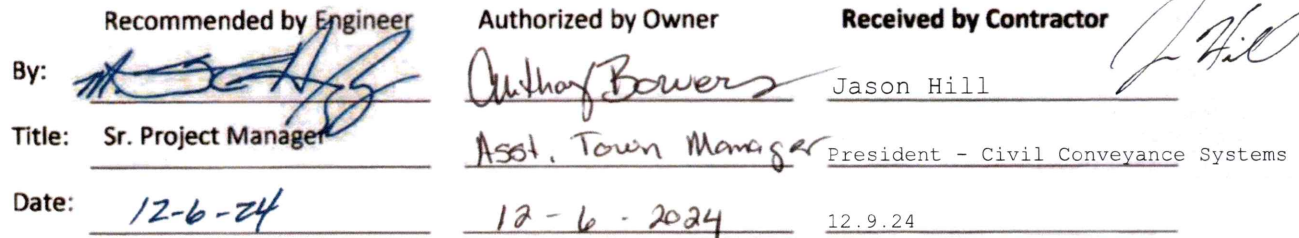 Recommended by Engineer Authorized by Owner Received by Contractor
By: Anthony Bowers Jason Hill J Hill
Title: Sr. Project Manager Asst. Town Manager President - Civil Conveyance Systems
Date: 12-6-24 12-6-2024 12.9.24